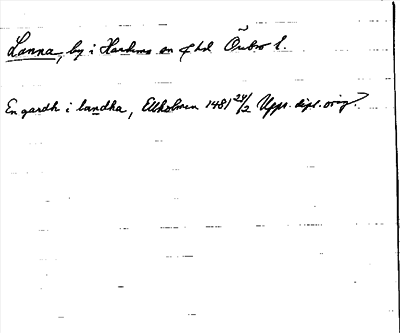 Lanna, by i Hardemo sn o hd Örebro l.
En gardh i landha, Ekholmen 1481 24/2 Upps. dipl. orig.